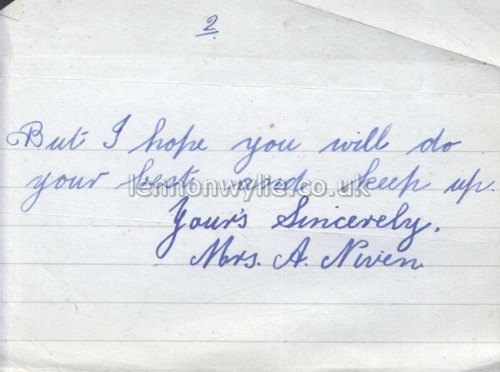 2
But I hope you will do
your best and keep up.
lennonwylie.co.uk
Your's Sincerely,
Mrs. A. Niven